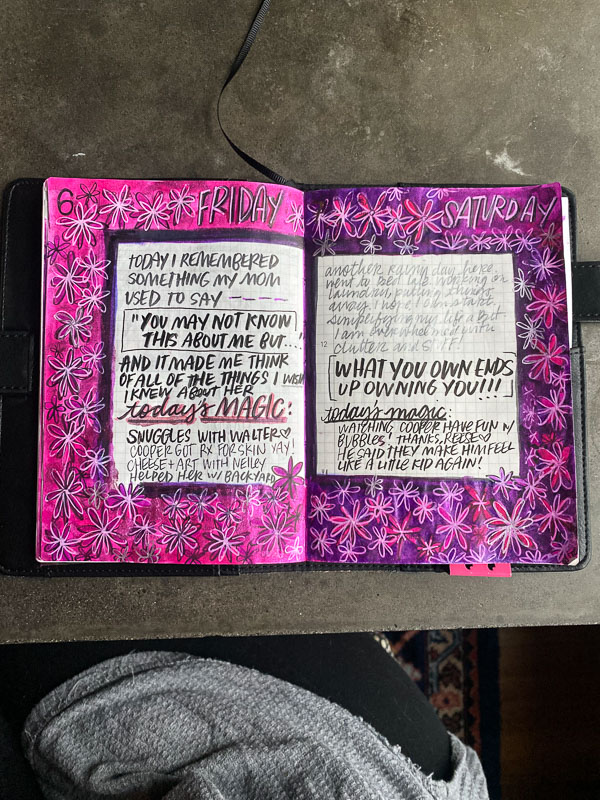 6
FRIDAY
TODAY I REMEMBERED
SOMETHING MY MOM
USED TO SAY ----
"YOU MAY NOT KNOW
THIS ABOUT ME BUT..."
AND IT MADE ME THINK
OF ALL OF THE THINGS I WISH
I KNEW ABOUT HER
today's MAGIC:
SNUGGLES WITH WALTER♡
COOPER GOT RX FOR SKIN YAY!
CHEESE + ART WITH NEILEY
HELPED HER W/ BACKYARD
SATURDAY
another rainy day here
went to bed late working on
laundry, putting things
away. I need to start
simplifying my life a bit
I am overwhelmed with
12
clutter and STUFF!
WHAT YOU OWN ENDS
UP OWNING YOU!!!
today's magic:
WATCHING COOPER HAVE FUN W/
BUBBLES! THANKS, REESE♡
HE SAID THEY MAKE HIM FEEL
LIKE A LITTLE KID AGAIN!